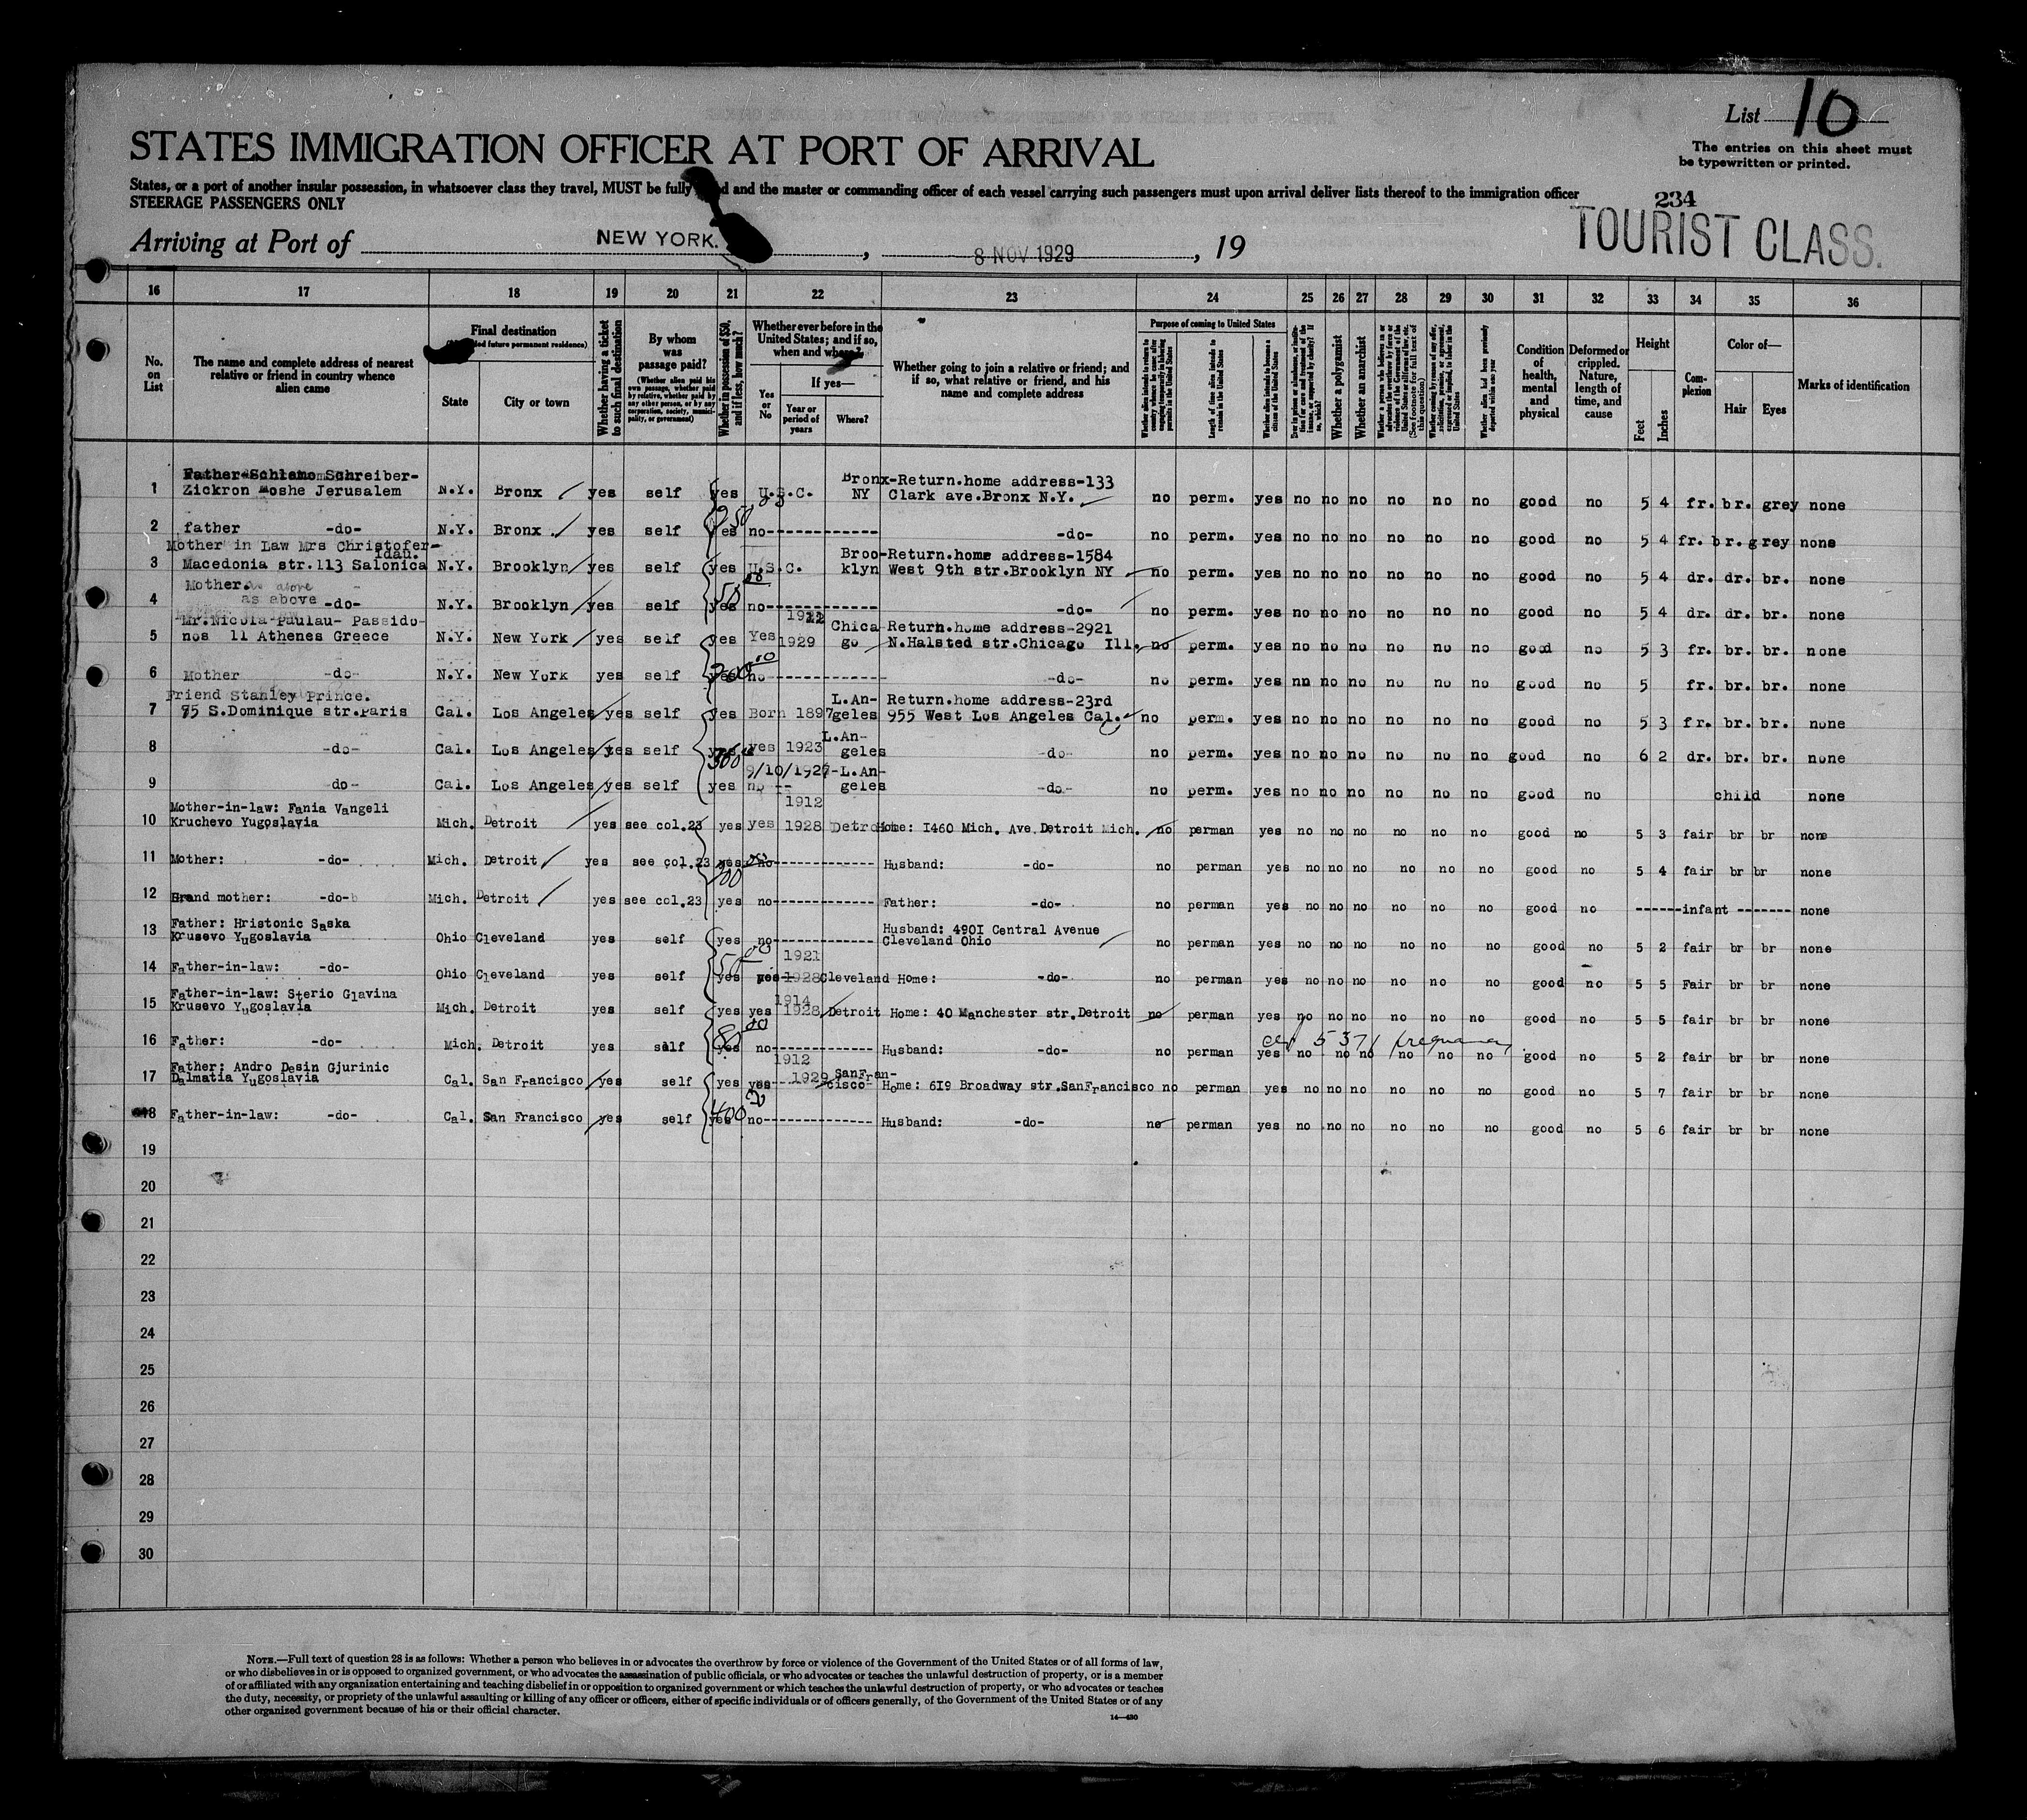 List 10
The entries on this sheet must
be typewritten or printed.
STATES IMMIGRATION OFFICER AT PORT OF ARRIVAL
States, or a port of another insular possession, in whatsoever class they travel, MUST be fully and the master or commanding officer of each vessel carrying such passengers must upon arrival deliver lists thereof to the immigration officer
STEERAGE PASSENGERS ONLY
234
TOURIST CLASS.
Arriving at Port of NEW YORK. , 8 NOV 1929 , 19
16 17 18 19 20 21 22 23 24 25 26 27 28 29 30 31 32 33 34 35 36
No. on List
The name and complete address of nearest relative or friend in country whence alien came
Final destination
future permanent residence)
State
City or town
Whether having a ticket to such final destination
By whom was passage paid?
(Whether alien paid his own passage, whether paid by relative, whether paid by any other person, or by any corporation, society, municipality, or government)
Whether in possession of $50, and if less, how much?
Whether ever before in the United States; and if so, when and where?
Yes or No
If yes—
Year or period of years
Where?
Whether going to join a relative or friend; and if so, what relative or friend, and his name and complete address
Purpose of coming to United States
Length of time alien intends to remain in the United States
Whether alien intends to become a citizen of the United States
Whether a polygamist
Whether an anarchist
(See footnote for full text of this question)
Condition of health, mental and physical
Deformed or crippled. Nature, length of time, and cause
Height
Feet
Inches
Complexion
Color of—
Hair
Eyes
Marks of identification
Father-Schlemo Schreiber- Bronx-Return.home address-133
1 Zickron Moshe Jerusalem N.Y. Bronx yes self yes U.S.C. NY Clark ave.Bronx N.Y. no perm. yes no no no no no no good no 5 4 fr. br. grey none
250
2 father -do- N.Y. Bronx yes self yes no -do- no perm. yes no no no no no no good no 5 4 fr. br. grey none
Mother in Law Mrs Christofer-
idau. Broo-Return.home address-1584
3 Macedonia str.113 Salonica N.Y. Brooklyn yes self yes U.S.C. klyn West 9th str.Brooklyn NY no perm. yes no no no no no no good no 5 4 dr. dr. br. none
Mother. as above
50
4 as above -do- N.Y. Brooklyn yes self yes no -do- no perm. yes no no no no no no good no 5 4 dr. dr. br. none
Mr.Nicola Paulau- Passido- Chica-Return.home address-2921
5 nos 11 Athenes Greece N.Y. New York yes self yes Yes 1929 go N.Halsted str.Chicago Ill. no perm. yes no no no no no no good no 5 3 fr. br. br. none
6 Mother -do- N.Y. New York yes self yes no -do- no perm. yes no no no no no no good no 5 fr. br. br. none
Friend Stanley Prince. L.An- Return.home address-23rd
7 75 S.Dominique str.Paris Cal. Los Angeles yes self yes Born 1897 geles 955 West Los Angeles Cal. no perm. yes no no no no no no good no 5 3 fr. br. br. none
L.An-
8 -do- Cal. Los Angeles yes self yes yes 1923 geles -do- no perm. yes no no no no no no good no 6 2 dr. br. br. none
300
9/10/1927-L.An-
9 -do- Cal. Los Angeles yes self yes no geles -do- no perm. yes no no no no no no good no child none
Mother-in-law: Fania Vangeli 1912
10 Kruchevo Yugoslavia Mich. Detroit yes see col.23 yes yes 1928 Detroit Home: 1460 Mich. Ave.Detroit Mich. no perman yes no no no no no no good no 5 3 fair br br none
11 Mother: -do- Mich. Detroit yes see col.23 yes no Husband: -do- no perman yes no no no no no no good no 5 4 fair br br none
200
12 Grand mother: -do- Mich. Detroit yes see col.23 yes no Father: -do- no perman yes no no no no no no good no infant none
Father: Hristonic Saska Husband: 4901 Central Avenue
13 Krusevo Yugoslavia Ohio Cleveland yes self yes no Cleveland Ohio no perman yes no no no no no no good no 5 2 fair br br none
1921
14 Father-in-law: -do- Ohio Cleveland yes self yes yes 1928 Cleveland Home: -do- no perman yes no no no no no no good no 5 5 Fair br br none
Father-in-law: Sterio Glavina 1914
15 Krusevo Yugoslavia Mich. Detroit yes self yes yes 1928 Detroit Home: 40 Manchester str.Detroit no perman yes no no no no no no good no 5 5 fair br br none
80
cert 5371 pregnancy
16 Father: -do- Mich. Detroit yes self yes no Husband: -do- no perman yes no no no no no no good no 5 2 fair br br none
Father: Andro Desin Gjurinic 1912 SanFran-
17 Dalmatia Yugoslavia Cal. San Francisco yes self yes yes 1929 cisco Home: 619 Broadway str.SanFrancisco no perman yes no no no no no no good no 5 7 fair br br none
400
18 Father-in-law: -do- Cal. San Francisco yes self yes no Husband: -do- no perman yes no no no no no no good no 5 6 fair br br none
19
20
21
22
23
24
25
26
27
28
29
30
NOTE.—Full text of question 28 is as follows: Whether a person who believes in or advocates the overthrow by force or violence of the Government of the United States or of all forms of law,
or who disbelieves in or is opposed to organized government, or who advocates the assassination of public officials, or who advocates or teaches the unlawful destruction of property, or is a member
of or affiliated with any organization entertaining and teaching disbelief in or opposition to organized government or which teaches the unlawful destruction of property, or who advocates or teaches
the duty, necessity, or propriety of the unlawful assaulting or killing of any officer or officers, either of specific individuals or of officers generally, of the Government of the United States or of any
other organized government because of his or their official character.
14—430